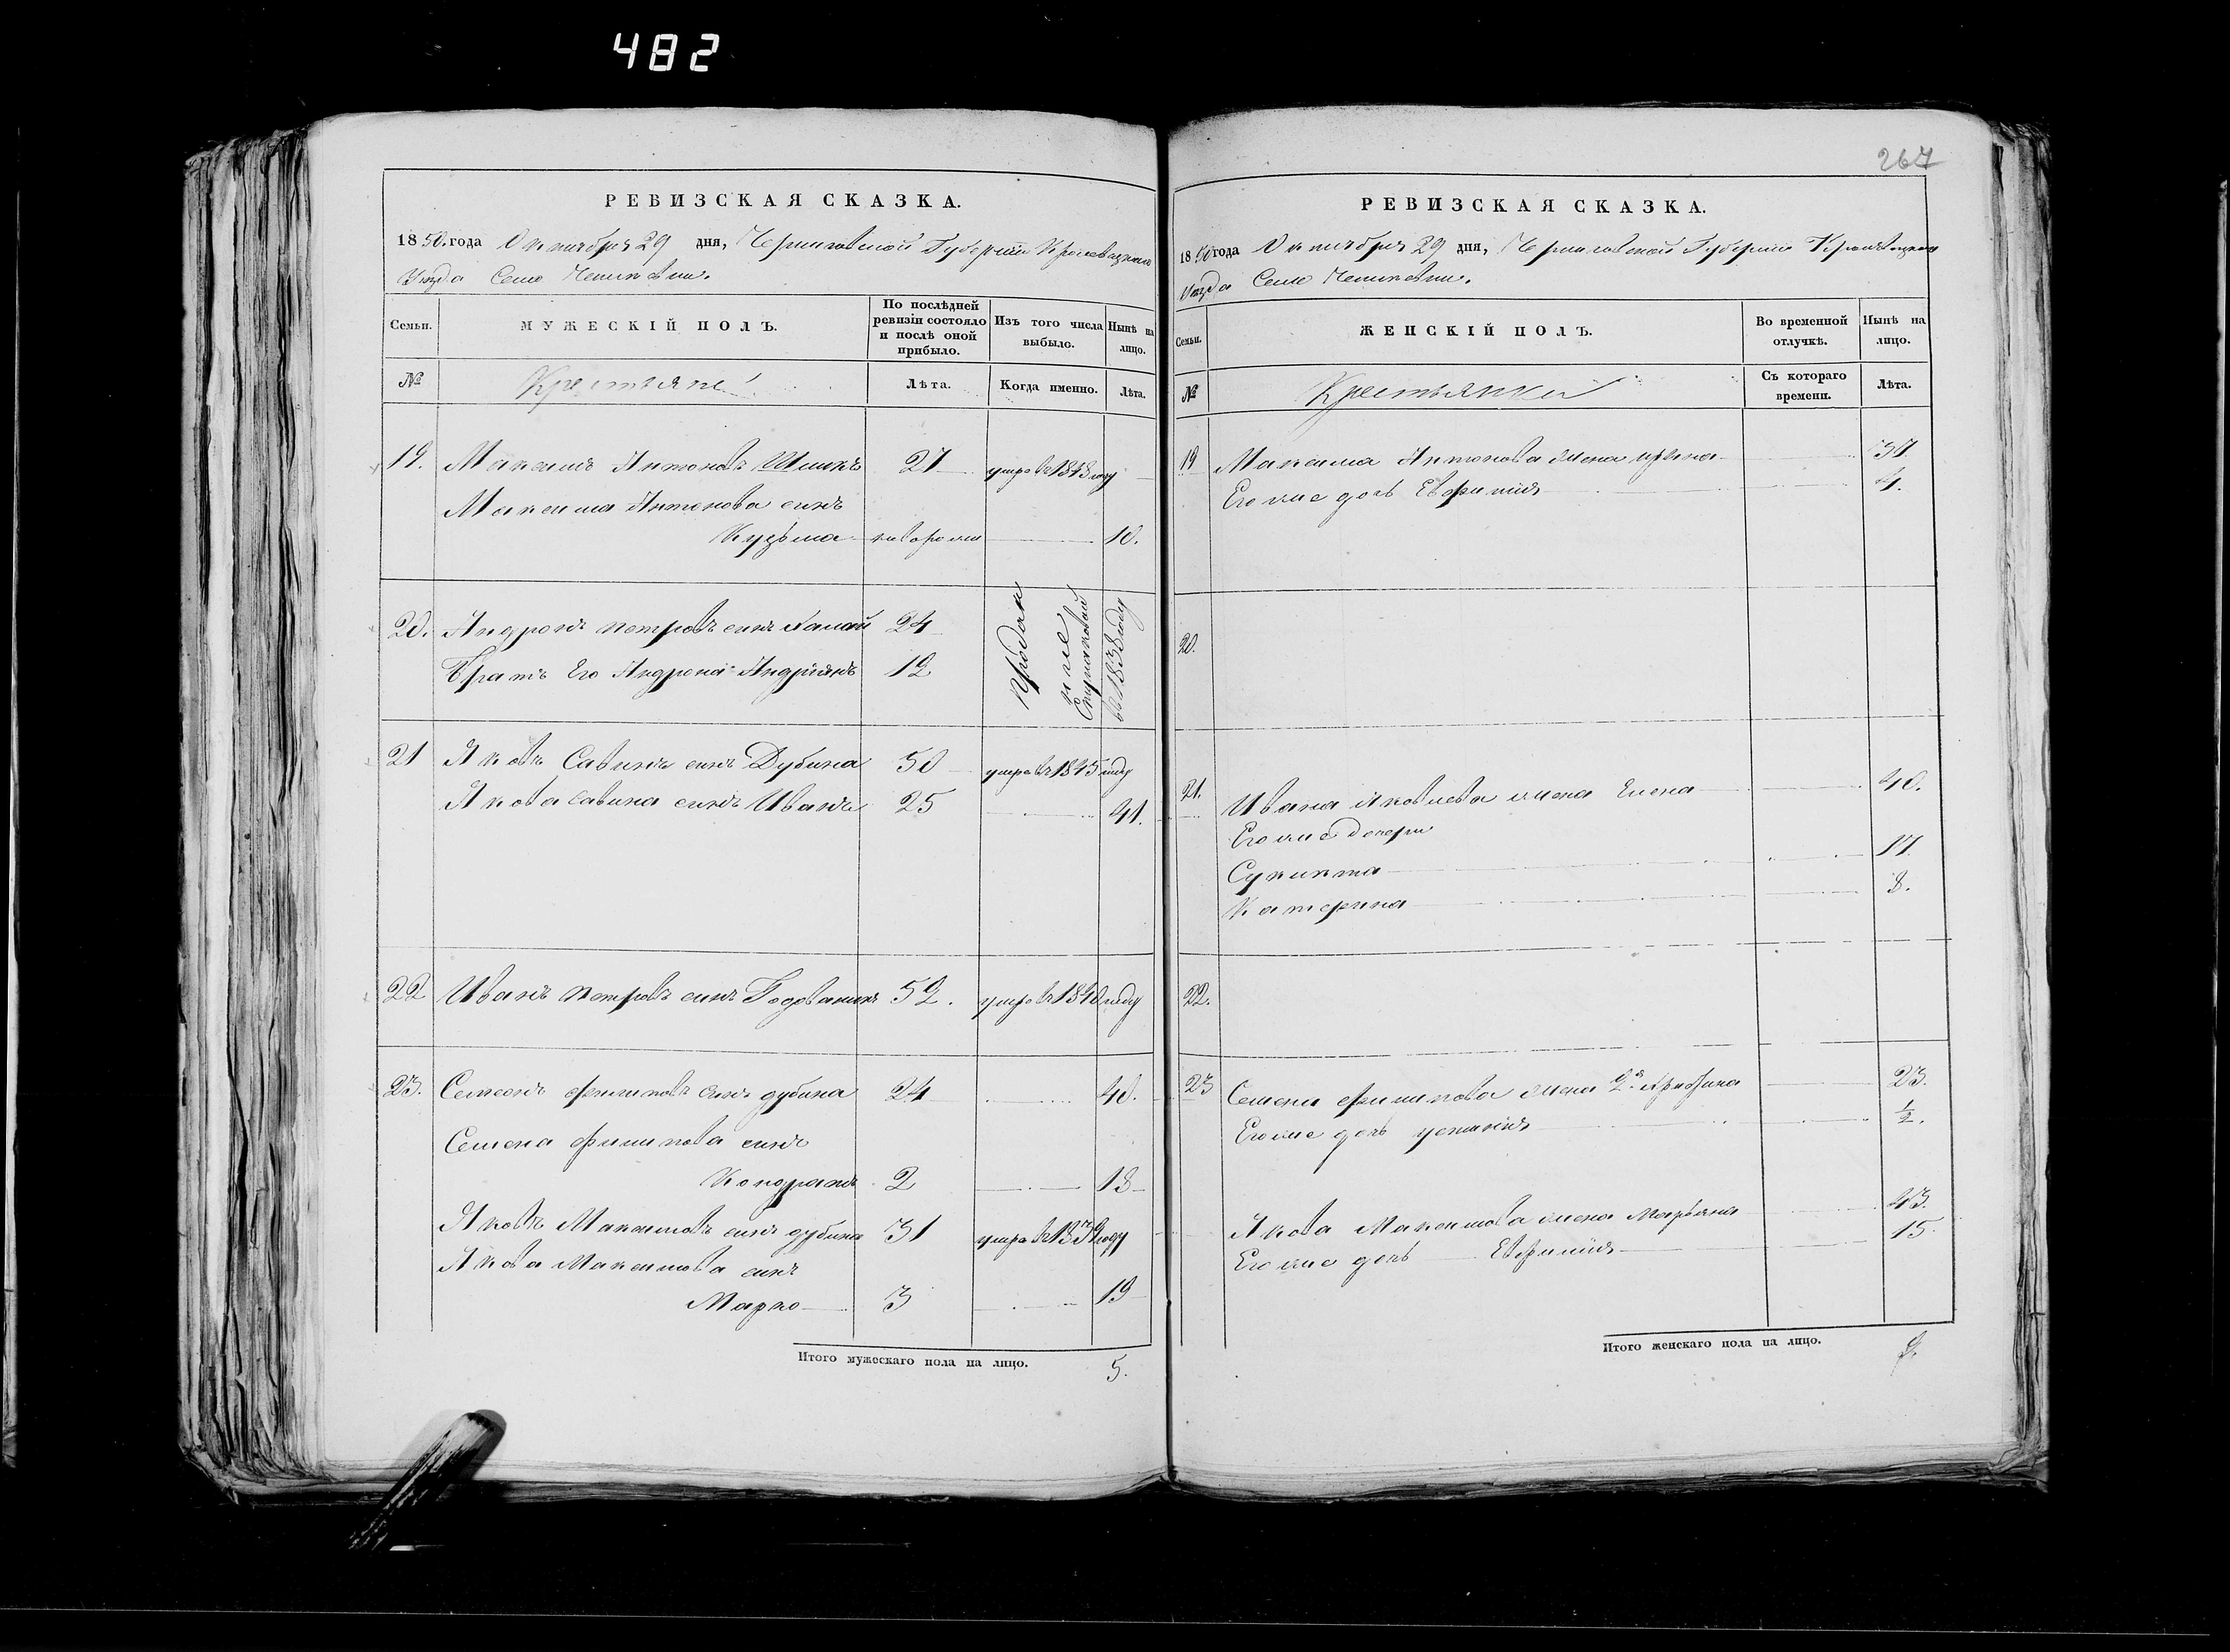 482
267
РЕВИЗСКАЯ СКАЗКА.
1850. года Октября 29 дня, Черниговской Губернии Кролевецкаго
Уезда Село
Семьи.
МУЖЕСКІЙ ПОЛЪ.
По послѣдней ревизіи состояло и послѣ оной прибыло.
Изъ того числа выбыло.
Нынѣ на лицо.
№
Крестьяне
Лѣта.
Когда именно.
Лѣта.
19. Максимъ Антоновъ 27 умре въ 1848 году
Максима Антонова синъ
Кузьма новорожд 10.
20. Андронъ Петровъ синъ 24
Братъ Его Андрона Андріянъ 12
продан
въ 1838 году
21 Яковъ Савинъ синъ Дубина 50 умре въ 1845 году
Якова Савина синъ Иванъ 25 41.
22 Иванъ Петровъ синъ 52. умре въ 1840 году
23. Семенъ Филиповъ синъ дубина 24 40.
Семена Филипова синъ
Кондратъ 2 18
Яковъ Максимовъ синъ дубина 31 умре въ 1839 году
Якова Максимова синъ
Марко 3 19
Итого мужескаго пола на лицо. 5.
РЕВИЗСКАЯ СКАЗКА.
1850 года Октября 29 дня, Черниговской Губернии Кролевецкаго
Уезда Село
Семьи.
ЖЕНСКІЙ ПОЛЪ.
Во временной отлучкѣ.
Нынѣ на лицо.
№
Крестьянки
Съ котораго времени.
Лѣта.
19 Максима Антонова жена Ирина 37
Его же дочь Евфимія 4.
20.
21. Ивана Яковлева жена Елена 40.
Его же дочери
17
Катерина 8.
22.
23 Семена Филипова жена 2я 23.
Его же дочь Устинія ½.
Якова Максимова жена Марьяна 43.
Его же дочь Евфимія 15.
Итого женскаго пола на лицо.